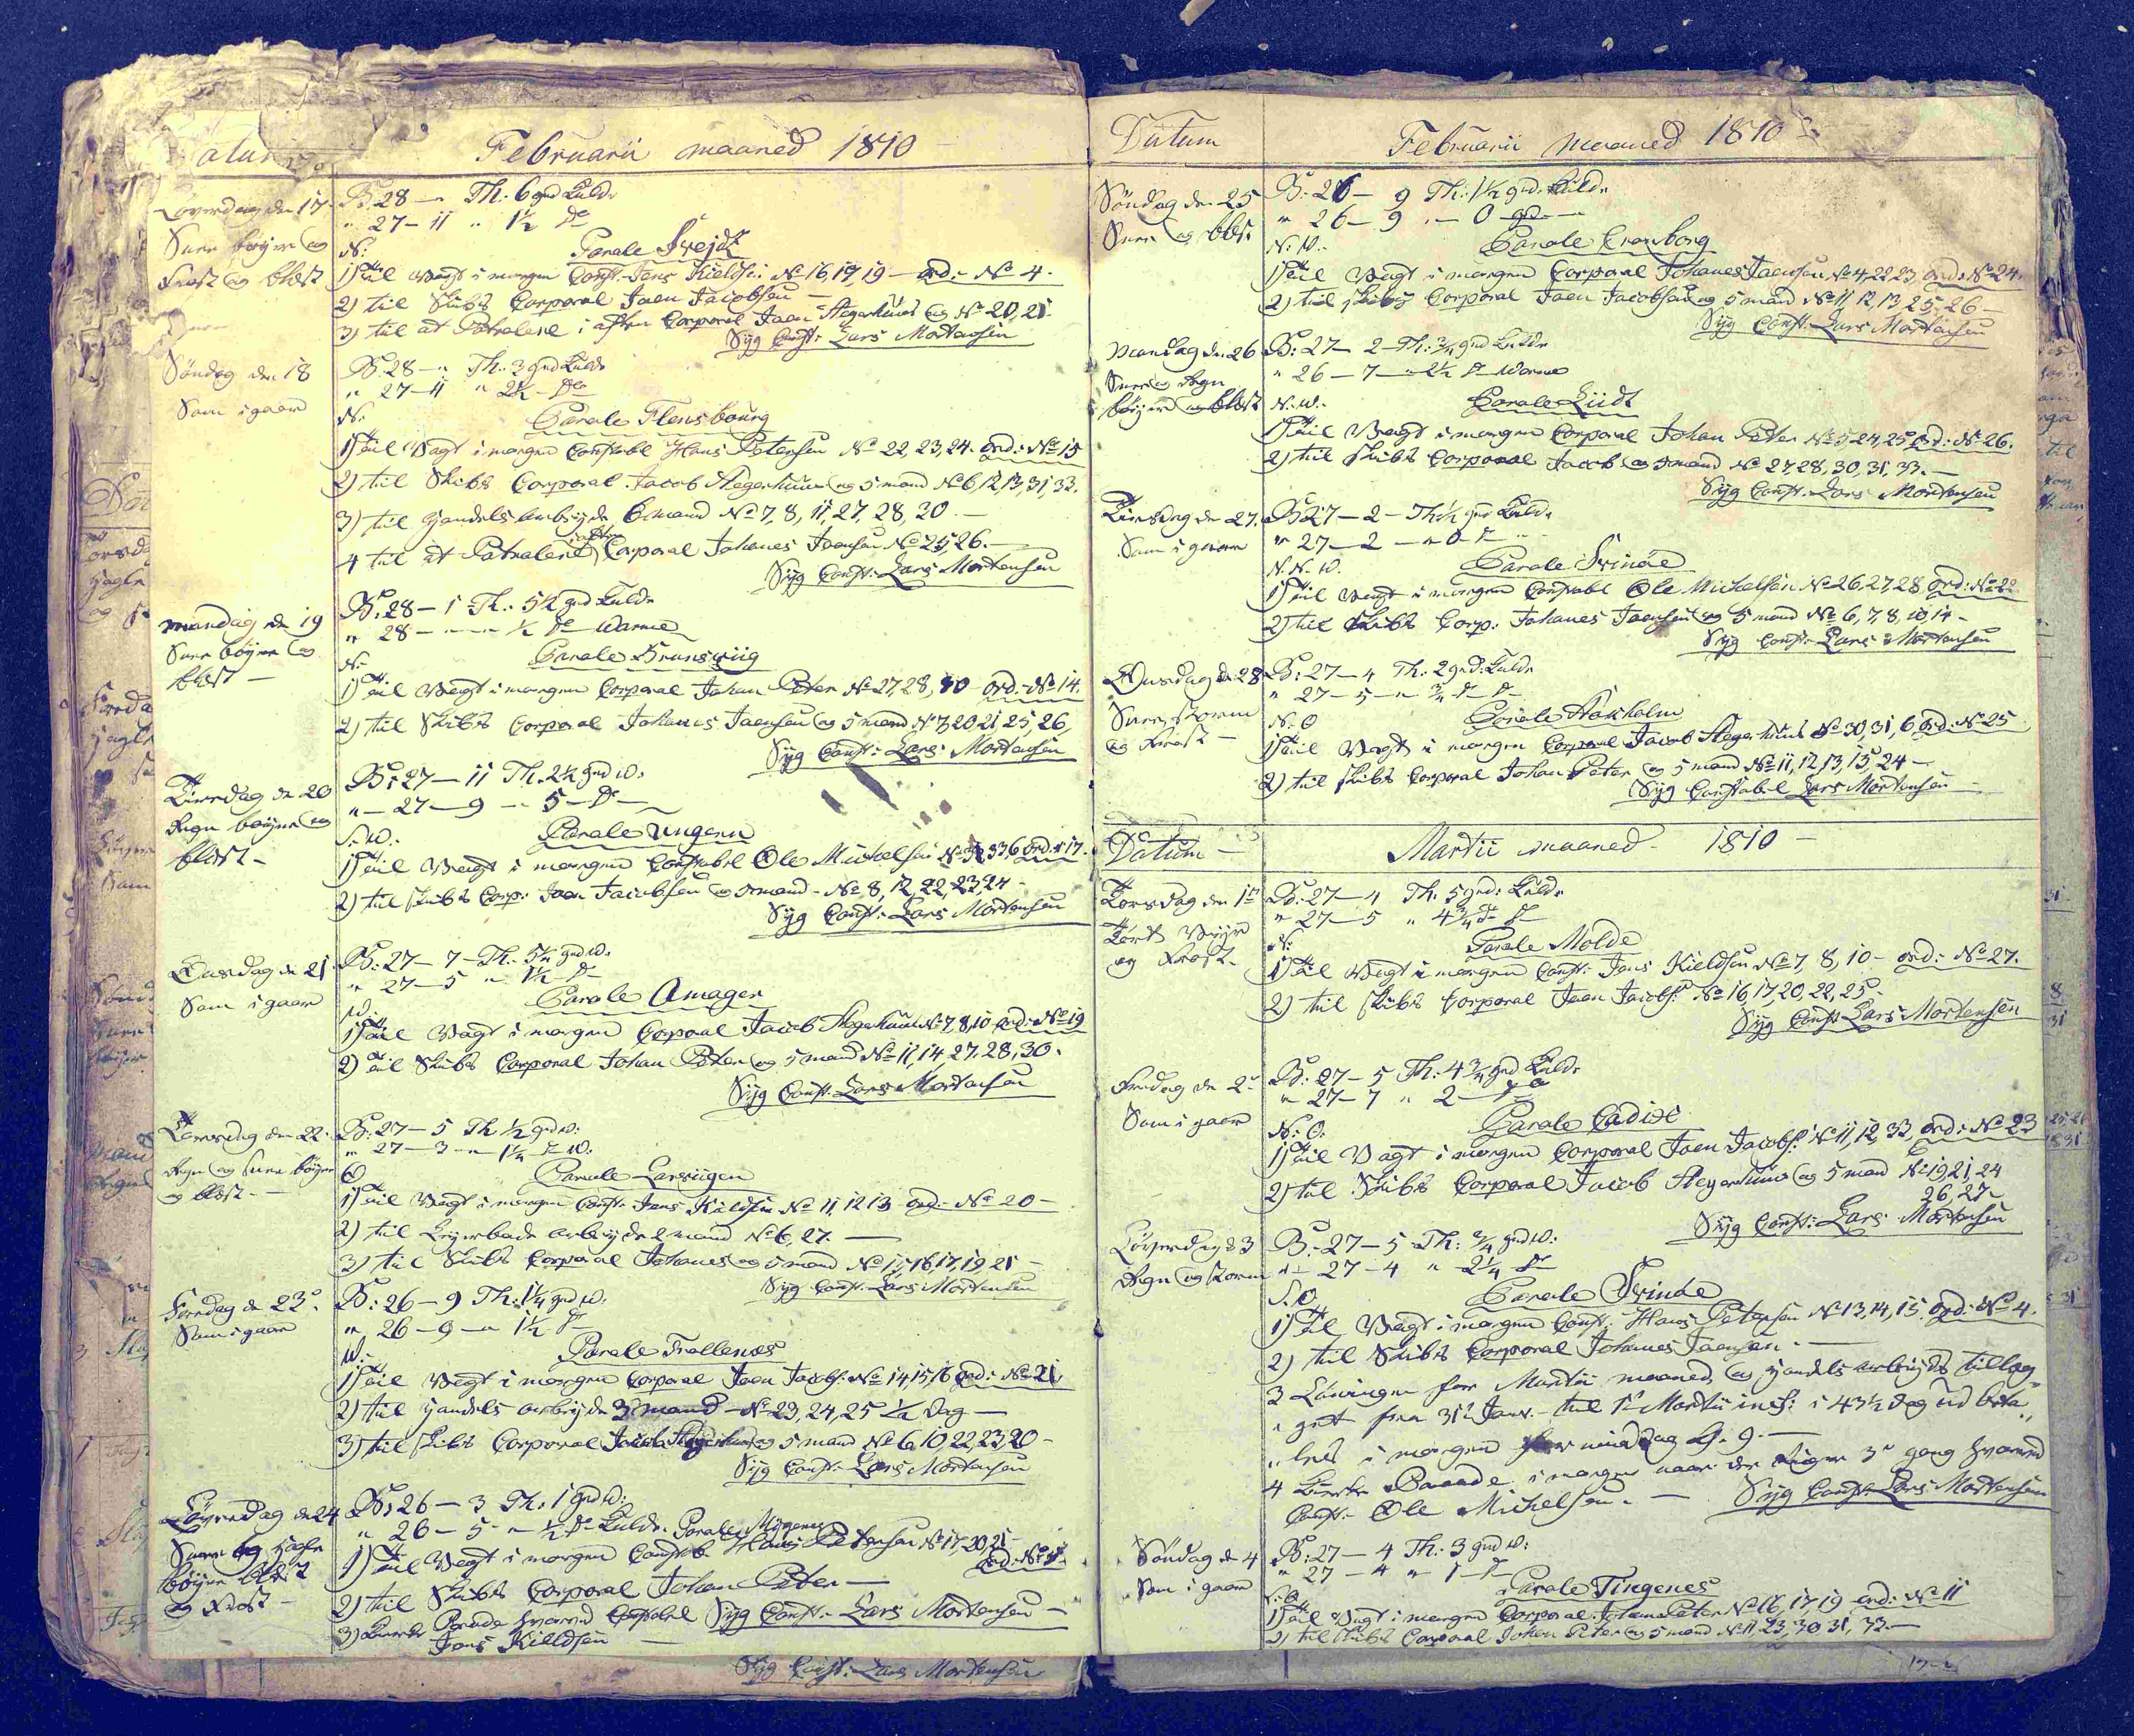 Februarii maaned 1810
Löverdag den 17
Snee böyer og
Frost og blæst
B. 28 – " Th. 6 grd Kulde
" 27 – 11 " 1½ do
N.
Parole Svejtz
1) Til Vagt i morgen Const. Jens Kieldsen No 16, 17, 19 – ord: No 4.
2) til Skibs Corporal Joen Jacobsen –
3) til at Patrolere i aften Corporal Joen Hegerhuus og No 20, 21.
Syg Const: Lars Mortensen
Söndag den 18
Som igaar
B. 28 – " Th. 3 grd Kulde
" 27 – 11 " 2½ – do
N.
Parole Flensbourg
1) Til Vagt i morgen Constabl Hans Petersen No 22, 23, 24. ord: No 15
2) til Skibs Corporal Jacob Hegerhuus og 5 mand No 6, 12, 13, 31, 33.
3) til Handels arbeyde 6 mand No 7, 8, 11, 27, 28, 30. –
4 til at Patrolere i aften Corporal Johanes Joensen No 25, 26. –
Syg Const: Lars Mortensen
mandag den 19
Snee böyer og
blæst –
B. 28 – 1 Th. 5½ grd Kulde
" 28 – " – ½ do Warme
N.
Parole Brunsviig
1) Til Vagt i morgen Corporal Johan Peter No 27, 28, 30 – ord: No 14.
2) til Skibs Corporal Johanes Joensen og 5 mand No 7, 20, 21, 25, 26,
Syg Const: Lars Mortensen
Tirsdag den 20
Regn böyer og
blæst –
B: 27 – 11 Th. 2½ grd W.
" – 27 – 9 – " 5 – do –
S. W.
Parole Ungern
1) Til Vagt i morgen Constabel Ole Mickelsen No 31, 33, 6 ord: No 17.
2) til Skibs Corp: Joen Jacobsen og 5 mand – No 8, 12, 22, 23, 24 –
Syg Const: Lars Mortensen
Onsdag den 21
Som igaar
B: 27 – 7 – Th. 5¼ grd W.
" 27 – 5 " 1½ do
W.
Parole Amager
1) Til Vagt i morgen Corporal Jacob Hegerhuus No 7, 8, 10 ord: No 19
2) til Skibs Corporal Johan Peter og 5 mand No 11, 14, 27, 28, 30.
Syg Const: Lars Mortensen
Torsdag den 22
Regn og Snee böyer
og blæst –
B: 27 – 5 Th ½ grd W.
" 27 – 3 – " 1¼ do W.
O
Parole Larviigen
1) Til Vagt i morgen Const. Jens Kieldsen No 11, 12, 13 ord: No 20 –
2) til arbeyde 2 mand No 6, 27. –
3) til Skibs Corporal Johanes og 5 mand No 15, 16, 17, 19, 21 –
Syg Const: Lars Mortensen
Fredag den 23
Som igaar
B: 26 – 9 Th: 1¼ grd W.
" 26 – 9 – " 1½ do
W.
Parole Trellenæs
1) Til Vagt i morgen Corporal Joen Jacobs: No 14, 15, 16 ord: No 21
2) til Handels arbeyde 3 mand – No 23, 24, 25 ½ dag –
3) til Skibs Corporal Jacob Hegerhuus og 5 mand No 6, 10, 22, 23, 20 –
Syg Const: Lars Mortensen
Löverdag den 24
Snee og Hagle
böyer blæst
og Frost –
B: 26 – 3 Th: 1 grd W.
" 26 – 5 – " ½ do Kulde. Parole Mÿgenæs
1) Til Vagt i morgen Constab. Hans Petersen No 17, 20, 21 –
ord: No
2) til Skibs Corporal Johan Peter –
3) Kirke Parade hvorved Constabel Syg Const: Lars Mortensen –
Jens Kieldsen –
Syg Const: Lars Mortensen
Datum
Februarii maaned 1810
Söndag den 25
Snee og blæst
B: 26 – 9 Th: 1½ grd. Kulde
" 26 – 9 " – 0 grd –
N. W.
Parole Cronborg
1) Til Vagt i morgen Corporal Johanes Joensen No 4, 22, 23 ord: No 24.
2) til Skibs Corporal Joen Jacobsen og 5 mand No 11, 12, 13, 25, 26 –
Syg Const: Lars Mortensen
mandag den 26
Snee og Regn
böyer og blæst
B: 27 – 2 – Th: ¾ grd Kulde
" 26 – 7 – " 2½ do Warme
N. W.
Parole Liidt
1) Til Vagt i morgen Corporal Johan Peter No 5, 24, 25 ord: No 26.
2) til Skibs Corporal Jacob og 5 mand No 27, 28, 30, 31, 33. –
Syg Const: Lars Mortensen
Tirsdag den 27.
Som igaar
B 27 – 2 – Th ½ grd Kulde
" 27 – 2 – " 0 –
N. N. W.
Parole Svinöe
1) Til Vagt i morgen Constabl Ole Mickelsen No 26, 27, 28 ord: No 22
2) til Skibs Corp: Johanes Joensen og 5 mand No 6, 7, 8, 10, 14 –
Syg Const: Lars Mortensen
Onsdag den 28
Snee, storm
og Frost –
B: 27 – 4 Th: 2 grd: Kulde
" 27 – 5 – " ¾ do do
N. O
Parole Stokholm
1) Til Vagt i morgen Corporal Jacob Hegerhuus No 30, 31, 6 ord: No 25
2) til Skibs Corporal Johan Peter og 5 mand No 11, 12, 13, 15, 24 –
Syg Constabel Lars Mortensen –
Datum –
Martii maaned – 1810 –
Torsdag den 1te
Tört Veyr
og Frost –
B: 27 – 4 Th. 5 grd: Kulde
" 27 – 5 " 4¾ do do
N:
Parole Molde
1) Til Vagt i morgen Const: Jens Kieldsen No 7, 8, 10 – ord: No 27.
2) til Skibs Corporal Joen Jacobs: No 16, 17, 20, 22, 25 –
Syg Const: Lars Mortensen
Fredag den 2
Som igaar
B: 27 – 5 Th: 4¾ grd Kulde
" 27 – 7 " 2 – do
N. O.
Parole Cadixe
1) Til Vagt i morgen Corporal Joen Jacobs: No 11, 12, 33, ord: No 23
2) til Skibs Corporal Jacob Hegerhuus og 5 mand No 19, 21, 24
26, 27 –
Syg Const: Lars Mortensen
Löverdag d 3
Regn og storm
B: 27 – 5 Th: ¾ grd W.
" – 27 – 4 " 2¼ do
S. O.
Parole Svinke
1) Til Vagt i morgen Const: Hans Petersen No 13, 14, 15, ord: No 4.
2) til Skibs Corporal Johanes Joensen. –
3 Löningen for Martii maaned, og Handels arbeyds tillæg
get fra 31 Janv. – til 1 Martii incl: i 43½ dag ud beta
les i morgen for middag Kl. 9. –
4 Kirke Parade i morgen naar der ringer 3de gang hvorved
Const: Ole Mickelsen. – Syg Const: Lars Mortensen
Söndag d 4
Som igaar
B: 27 – 4 Th: 3 grd W.
" 27 – 4 " 1 – do
S. O
Parole Tingenes
1) Til Vagt i morgen Corporal Johan Peter No 16, 17, 19 ord: No 11
2) til Skibs Corporal Johan Peter og 5 mand No 11, 23, 30, 31, 33. –